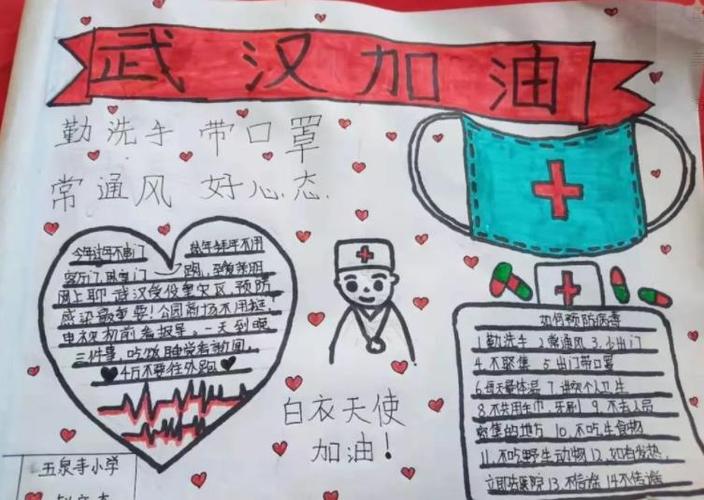 武汉加油
勤洗手 带口罩
常通风 好心态
今年过年不串门
拜年不用跑
网上聊 武汉
疫区 预防
感染最重要! 公园商场不用挺
电视机前看报导, 一天到晚
三件事, 吃饭睡觉看新闻,
4万不要往外跑
白衣天使
加油!
如何预防病毒
1 勤洗手 2 常通风 3. 少出门
4. 不聚集 5 出门带口罩
6 每天量体温 7 讲究个人卫生
8 不共用毛巾, 牙刷 9. 不去人员
密集的地方 10. 不吃生食物
11. 不吃野生动物 12. 如有发热,
立即去医院 13. 不信谣 14 不传谣
五泉寺小学